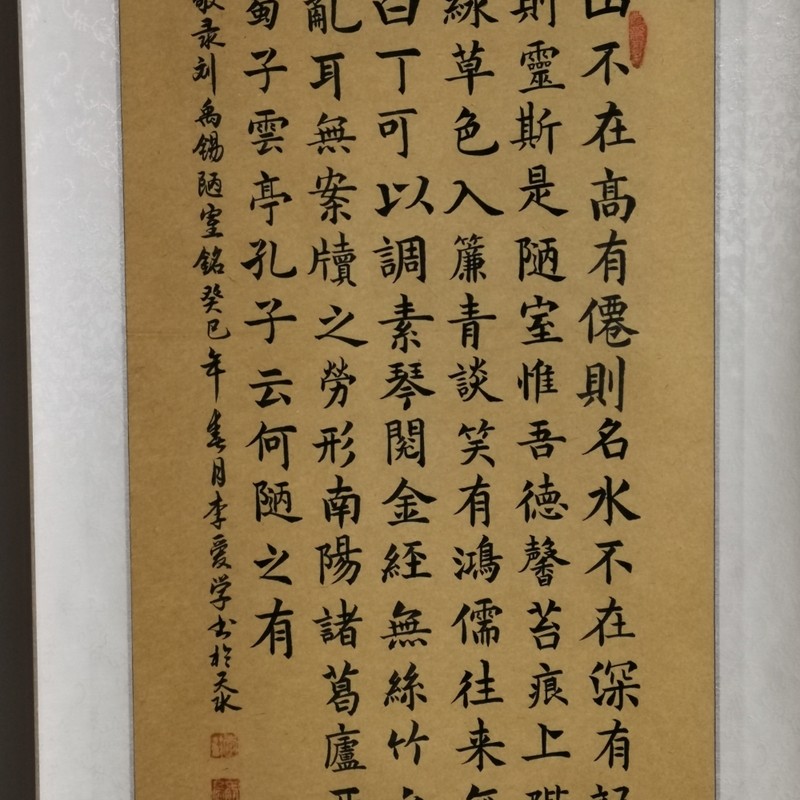 山不在高有僊則名水不在深有
則靈斯是陋室惟吾德馨苔痕上階
綠草色入簾青談笑有鴻儒往来無
白丁可以調素琴閱金經無絲竹之
亂耳無案牘之勞形南陽諸葛廬西
蜀子雲亭孔子云何陋之有
敬录刘禹锡陋室銘癸巳年春月李愛学书於天水